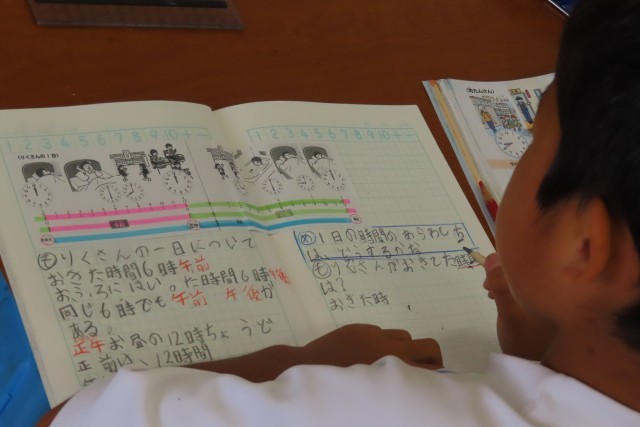 1 2 3 4 5 6 7 8 9 10
(りくさんの1日)
も りくさんの一日について
おきた時間6時午前
おふろにはいった時間6時午後
同じ6時でも午前 午後が
ある。
正午お昼の12時ちょうど
正前は、12時間
1 2 3 4 5 6
め 1日の時間のあらわしち
は、どうするかな
も りくさんがおきた時
は?
おきた時